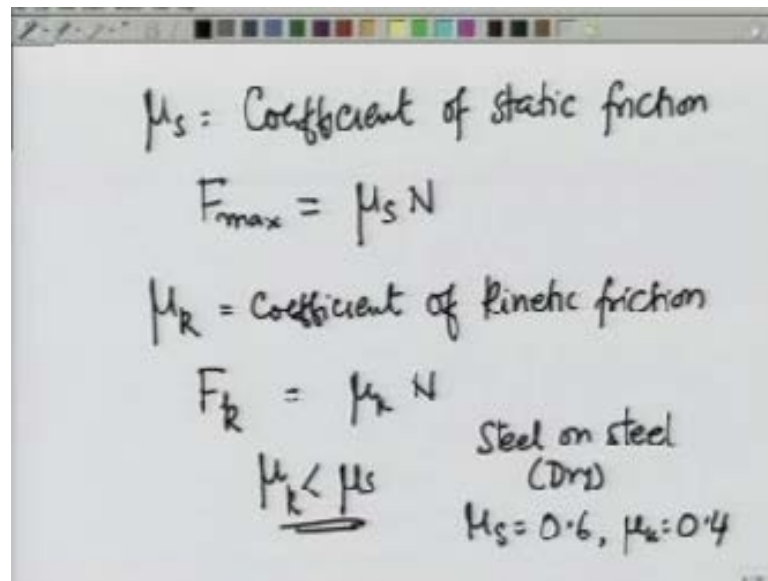 μs = Coefficient of static friction
Fmax = μs N
μk = Coefficient of kinetic friction
Fk = μk N
μk < μs
Steel on steel
(Dry)
μs = 0.6, μk = 0.4